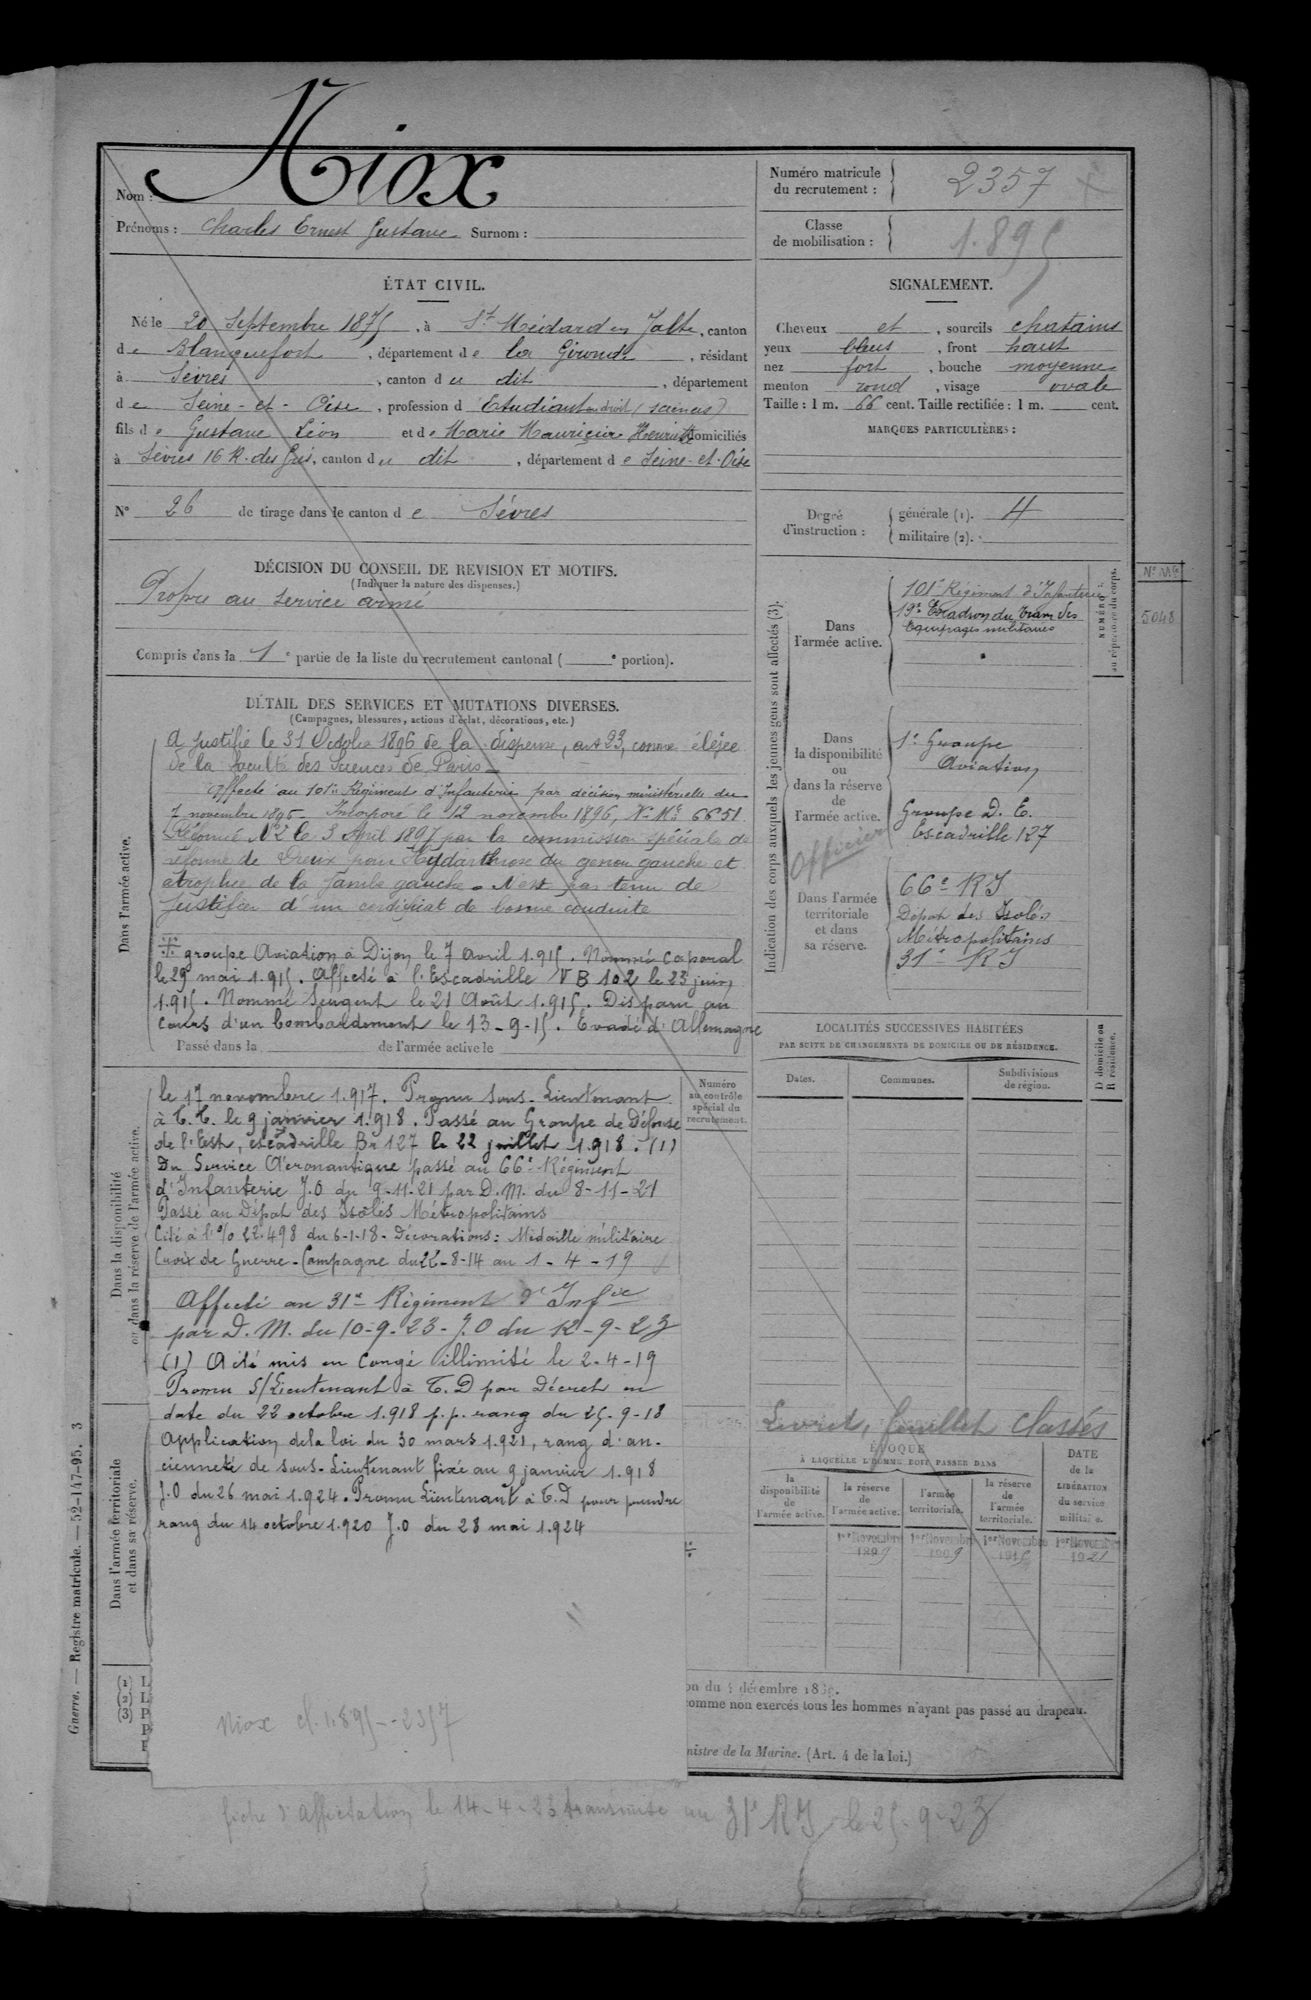 Niox
Nom :
Prénoms : Charles Ernest Gustave Surnom :
Numéro matricule du recrutement : 2357
Classe de mobilisation : 1.895
ÉTAT CIVIL.
Né le 20 Septembre 1875, à St Médard en Jalle, canton
de Blanquefort, département de la Gironde, résidant
à Sèvres, canton du dit, département
de Seine-et-Oise, profession d Etudiant en droit (sciences)
fils de Gustave Léon et de Marie Mauricien Henriette domiciliés
à Sèvres 16 R. des, canton du dit, département de Seine-et-Oise
N° 26 de tirage dans le canton de Sèvres
SIGNALEMENT.
Cheveux et, sourcils chatains
yeux bleus, front haut
nez fort, bouche moyenne
menton rond, visage ovale
Taille : 1 m. 66 cent. Taille rectifiée : 1 m. cent.
MARQUES PARTICULIÈRES :
Degré d'instruction : générale (1). 4
militaire (2).
DÉCISION DU CONSEIL DE REVISION ET MOTIFS.
(Indiquer la nature des dispenses.)
Propre au service armé
Compris dans la 1e partie de la liste du recrutement cantonal ( e portion).
DÉTAIL DES SERVICES ET MUTATIONS DIVERSES.
(Campagnes, blessures, actions d'éclat, décorations, etc.)
Dans l'armée active.
A justifié le 31 Octobre 1896 de la dispense, art 23, comme élève
de la faculté des Sciences de Paris
Affecté au 101e Régiment d'Infanterie par décision ministérielle du
7 novembre 1896. Incorporé le 12 novembre 1896, N° Mle 6651.
Réformé N°2 le 3 Avril 1897 par la commission spéciale de
réforme de Dreux pour Hydarthrose du genou gauche et
atrophie de la jambe gauche. N'est pas tenu de
justifier d'un certificat de bonne conduite
groupe Aviation à Dijon le 7 avril 1.915. Nommé caporal
le 29 mai 1.915. Affecté à l'Escadrille VB 102 le 23 juin
1.915. Nommé Sergent le 21 Août 1.915. Disparu au
cours d'un bombardement le 13-9-15. Evadé d'Allemagne
Passé dans la de l'armée active le
Dans la disponibilité ou dans la réserve de l'armée active.
le 17 novembre 1.917. Promu Sous-Lieutenant
à T.T. le 9 janvier 1.918. Passé au Groupe de Défense
de l'Est, escadrille Br 127 le 22 juillet 1.918. (1)
Du Service Aéronautique passé au 66e Régiment
d'Infanterie J.O du 9-11-21 par D.M. du 8-11-21
Passé au Dépôt des Isolés Métropolitains
Cité à l'% 22.498 du 6-1-18. Décorations : Médaille militaire
Croix de Guerre. Campagne du 22-8-14 au 1-4-19
Affecté au 31e Régiment d'Infie
par D.M. du 10-9-23. J.O du 12-9-23
(1) A été mis en congé illimité le 2-4-19
Promu S/Lieutenant à T.D par Décret en
date du 22 octobre 1.918 p.p. rang du 25-9-18
Application de la loi du 30 mars 1.921, rang d'an-
cienneté de sous-Lieutenant fixé au 9 janvier 1.918
J.O du 26 mai 1.924. Promu Lieutenant à T.D pour prendre
rang du 14 octobre 1.920 J.O du 28 mai 1.924
Dans l'armée territoriale et dans sa réserve.
Numéro
au contrôle
spécial du
recrutement.
Niox cl. 1.895 - 2357
(1) L
(2) L
(3) P
P
Guerre. — Registre matricule. — 52-147-95. 3
Indication des corps auxquels les jeunes gens sont affectés (3).
Dans
l'armée active.
101e Régiment d'Infanterie
19e Escadron du train des
Equipages militaires
NUMÉROS
au répertoire du corps.
N° Mle
5048
Dans
la disponibilité
ou
dans la réserve
de
l'armée active.
1er Groupe
Aviation
Groupe D. E.
Escadrille 127
Officier
Dans l'armée
territoriale
et dans
sa réserve.
66e RI
Dépôt des Isolés
Métropolitains
31e RI
LOCALITÉS SUCCESSIVES HABITÉES
PAR SUITE DE CHANGEMENTS DE DOMICILE OU DE RÉSIDENCE.
Dates.
Communes.
Subdivisions
de région.
D domicile ou
R résidence.
Livret, feuillet classés
ÉPOQUE
À LAQUELLE L'HOMME DOIT PASSER DANS
la
disponibilité
de
l'armée active.
la réserve
de
l'armée active.
l'armée
territoriale.
la réserve
de
l'armée
territoriale.
DATE
de la
LIBÉRATION
du service
militaire.
1er Novembre
1899
1er Novembre
1909
1er Novembre
1915
1er Novembre
1921
on du décembre
comme non exercés tous les hommes n'ayant pas passé au drapeau.
nistre de la Marine. (Art. 4 de la loi.)
fiche d'affectation le 14-4-23 transmise au 31e RI le 25-9-23